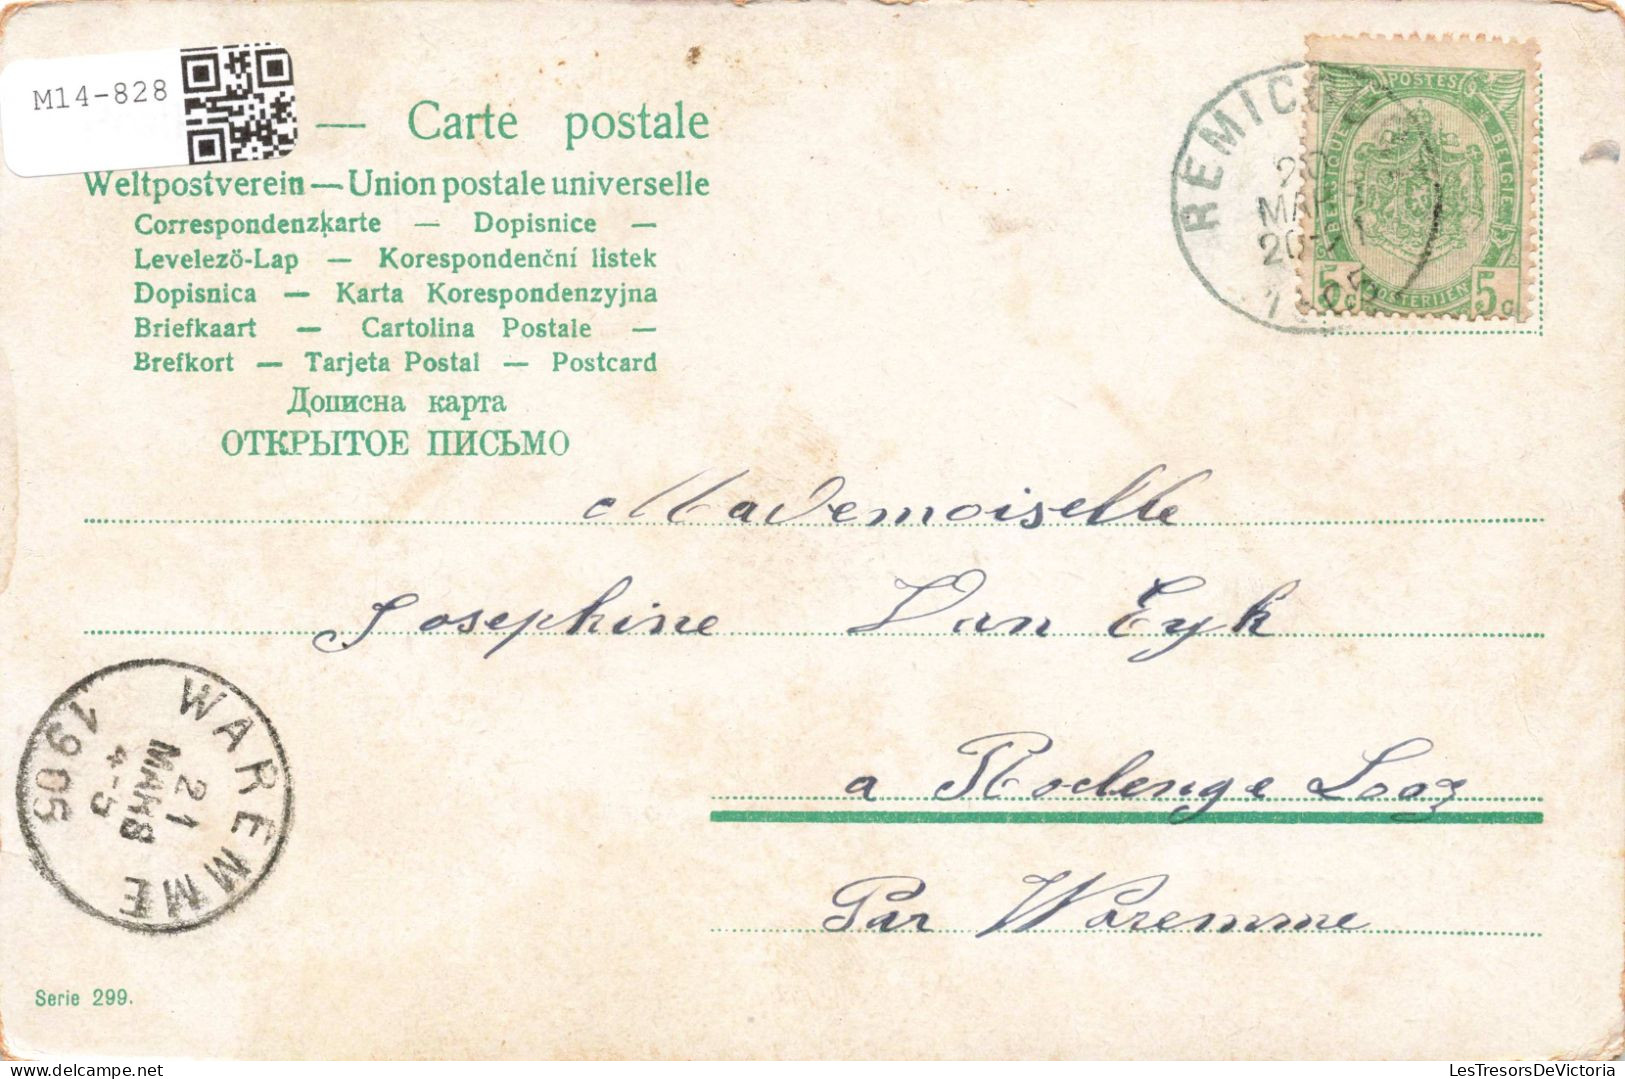 M14-828
— Carte postale
Weltpostverein — Union postale universelle
Correspondenzkarte — Dopisnice —
Levelezö-Lap — Korespondenční listek
Dopisnica — Karta Korespondenzyjna
Briefkaart — Cartolina Postale —
Brefkort — Tarjeta Postal — Postcard
Дописна карта
ОТКРЫТОЕ ПИСЬМО
REMICO
20
MARS
POSTES
BELGIQUE
BELGIË
5c POSTERIJEN 5c
Mademoiselle
Josephine Van Eyk
a Rodenge Looz
Par Waremme
WAREMME
21
MARS
4-5
1905
Serie 299.
LesTresorsDeVictoria
delcampe.net